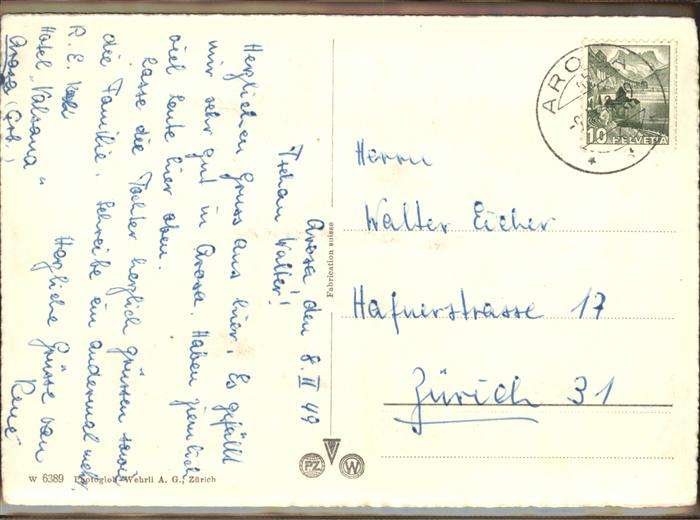 Arosa, den 8. II 49
Tschau Walter!
Herzlichen Gruss aus hier. Es gefällt
mir sehr gut in Arosa. Haben ziemlich
viel Leute hier oben.
Lasse die Tochter herzlich grüssen sowie
die Familie. Schreibe ein andermal mehr.
Herzliche Grüsse von
René
R. E.
Hotel "Valsana"
Arosa (Grb.)
Fabrication suisse
W 6389 Photoglob-Wehrli A. G., Zürich
PZ
W
AROSA
10 HELVETIA
Herrn
Walter Eicher
Hafnerstrasse 17
Zürich 31